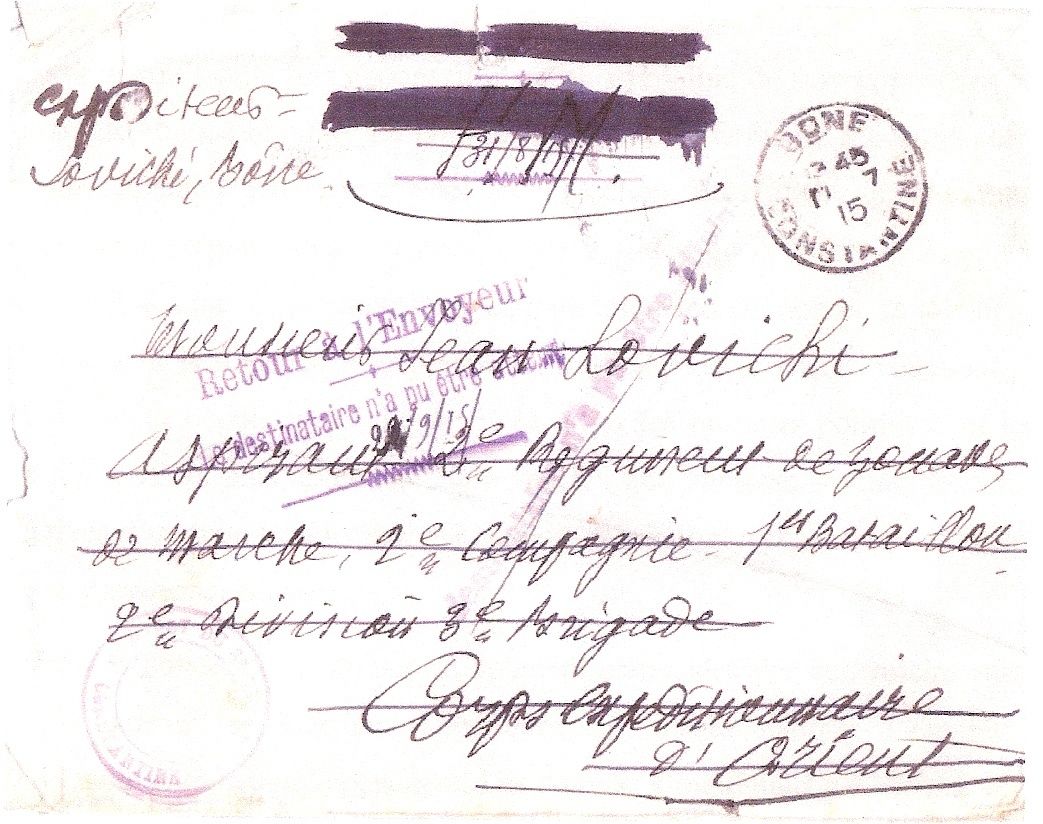 expéditeur =
Lovichi, Bône.
31/8/15 M.
BÔNE
45
7
15
CONSTANTINE
Retour à l'Envoyeur
Le destinataire n'a pu être atteint
/9/15
Monsieur Jean Lovichi -
Aspirant 2e Regiment de zouaves
de marche, 2e Compagnie - 1er Bataillon
2e Division 3e Brigade
Corps expéditionnaire
d'Orient